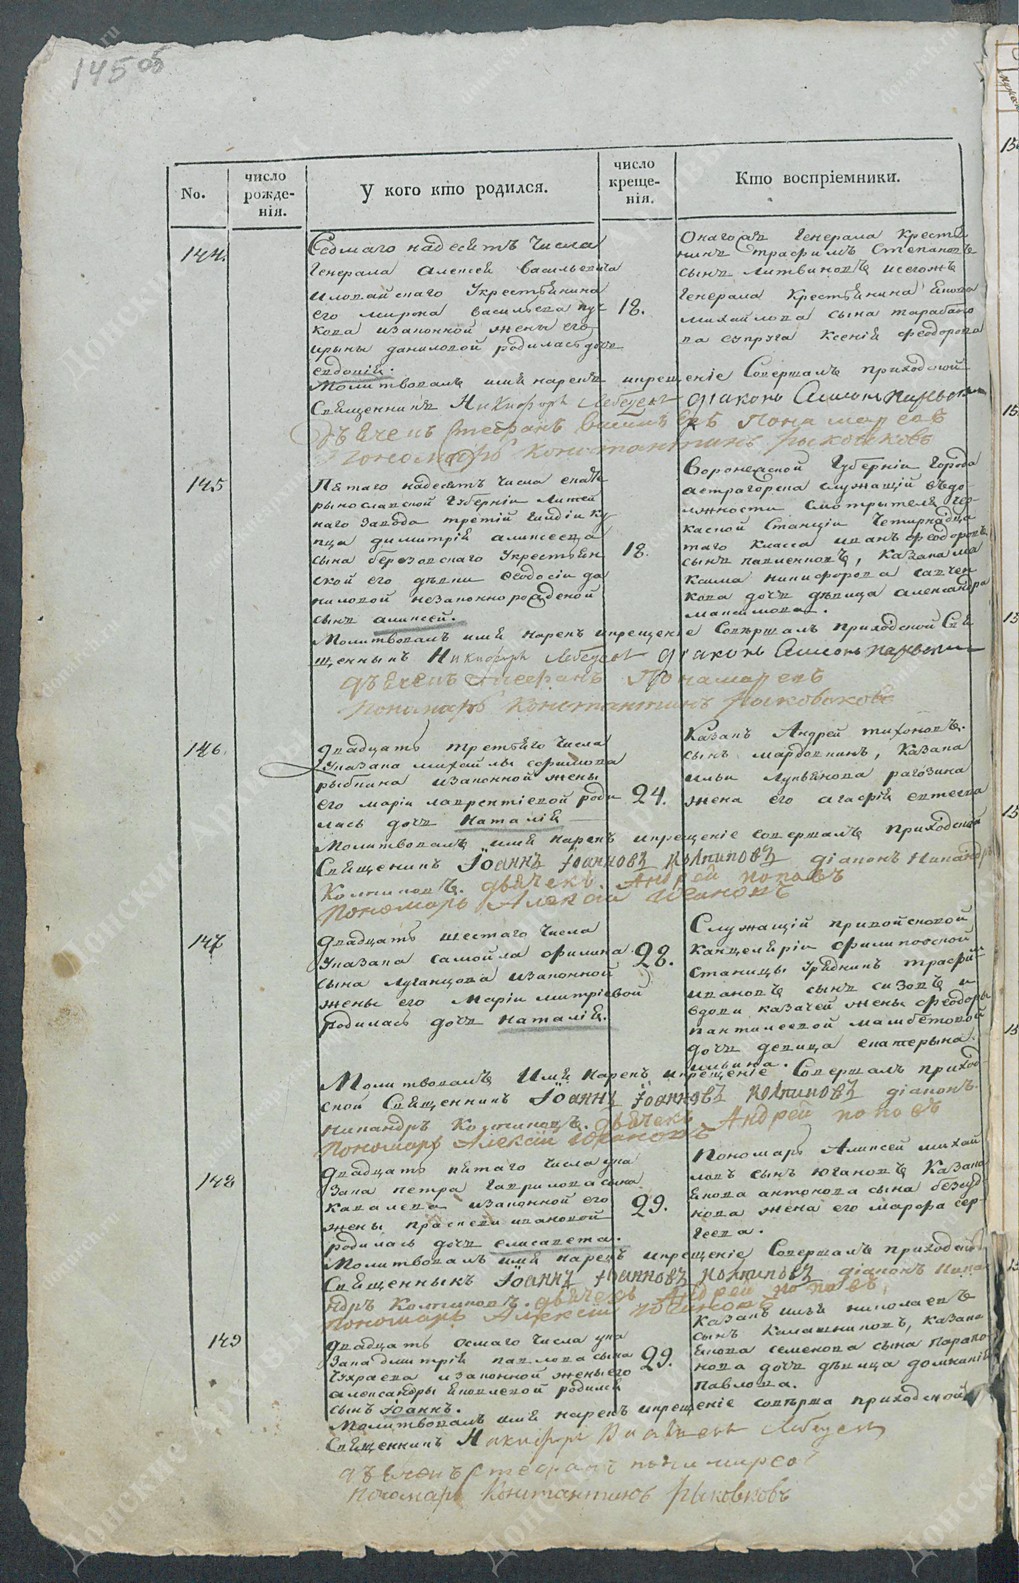 145 об
No.
число рожде-нія.
У кого кто родился.
число креще-нія.
Кто воспріемники.
144.
Седмаго надесять числа
Генерала Алексея Васильевича
Иловайскаго Укрестьянина
его Мирона Васильева
изаконной жены его
Ирины Даниловой родилась дочь
Евдокія.
18.
Генерала Кресть
янинъ Трофимъ Степановъ
сынъ Литвиновъ
Генерала Крестьянина Якова
Михайлова сына
супруга Ксенія Феодорова
Молитвовалъ имя нарекъ икрещеніе Совершалъ приходской
Священникъ Никифоръ Лебедевъ діаконъ
дьячекъ Стефанъ Пономаревъ
Пономарь Константинъ Рыковсковъ
145
Пятаго надесять числа Екате
рынославской Губерніи Литей
наго Завода третій Гилдіи Ку
пца Димитрія Алексеева
сына Березовскаго Укрестьян
ской его девки Феодосіи Да
ниловой незаконнорожденой
сынъ Алексей.
18.
Воронежской Губерніи Города
служащій въдо
лжности Смотрителя Чер
каской Станціи Четырнадца
таго Класса Иванъ Феодоровъ
сынъ Павленковъ, Казака Ма
ксима Никифорова
кова дочь девица Александра
Максимова.
Молитвовалъ имя нарекъ икрещеніе Совершалъ приходской Свя
щенникъ Никифоръ Лебедевъ діаконъ
дьячекъ Стефанъ Пономаревъ
пономарь Константинъ Рыковсковъ
146.
Двадцать третьяго Числа
Указака Михайлы Ефимова
Рыбкина изаконной жены
его Маріи Лаврентіевой роди
лась дочь Наталія
24.
Казакъ Андрей Тихоновъ
сынъ Мардовкинъ, Казака
Ильи Лукьянова Рагозина
жена его Агафія Евтеева
Молитвовалъ имя нарекъ икрещеніе совершалъ приходской
Священникъ Іоаннъ Іоанновъ Колпиковъ діаконъ Никандръ
Колпиковъ. дьячекъ. Андрей Поповъ
Пономарь Алексій Югановъ
147
Двадцать шестаго Числа
Указака Самойла Филина
сына Луганцова изаконной
жены его Маріи Митріевой
родилась дочь Наталія.
28.
Служащій привойсковой
Канцеляріи Филиповской
Станицы Урядникъ Трофимъ
Ивановъ сынъ Сизовъ и
вдовы казачей жены Феодоры
Пантилеевой Мамбетовой
дочь девица Екатерына
Ильина.
Молитвовалъ Имя нарекъ икрещеніе Совершалъ приход
ской Священникъ Іоаннъ Іоанновъ Колпиковъ діаконъ
Никандръ Колпиковъ. дьячекъ Андрей Поповъ
Пономарь Алексій Югановъ
148
Двадцать пятаго числа ука
зака Петра Гаврилова сына
Кавалева изаконной его
жены Прасковьи Ивановой
родилась дочь Елисавета.
29.
Пономарь Алексей Михай
ловъ сынъ Югановъ Казака
Якова Антонова сына
кова жена его Марфа Сер-
геева.
Молитвовалъ имя нарекъ икрещеніе Совершалъ приходской
Священникъ Іоаннъ Іоанновъ Колпиковъ діаконъ Ника
ндръ Колпиковъ. дьячекъ Андрей Поповъ,
пономарь Алексій Югановъ
149
Двадцать осмаго числа ука
зака Дмитрія Павлова сына
Чукраева изаконной жены его
Александры Яковлевой родился
сынъ Іоаннъ.
29.
Казакъ Илья Николаевъ
сынъ Калашниковъ, Казака
Якова Семенова сына
кова дочь девица Домникія
Павлова.
Молитвовалъ имя нарекъ икрещеніе соверша приходской
Священникъ Никифоръ Лебедевъ
дьячекъ Стефанъ Пономаревъ
пономарь Константинъ Рыковсковъ